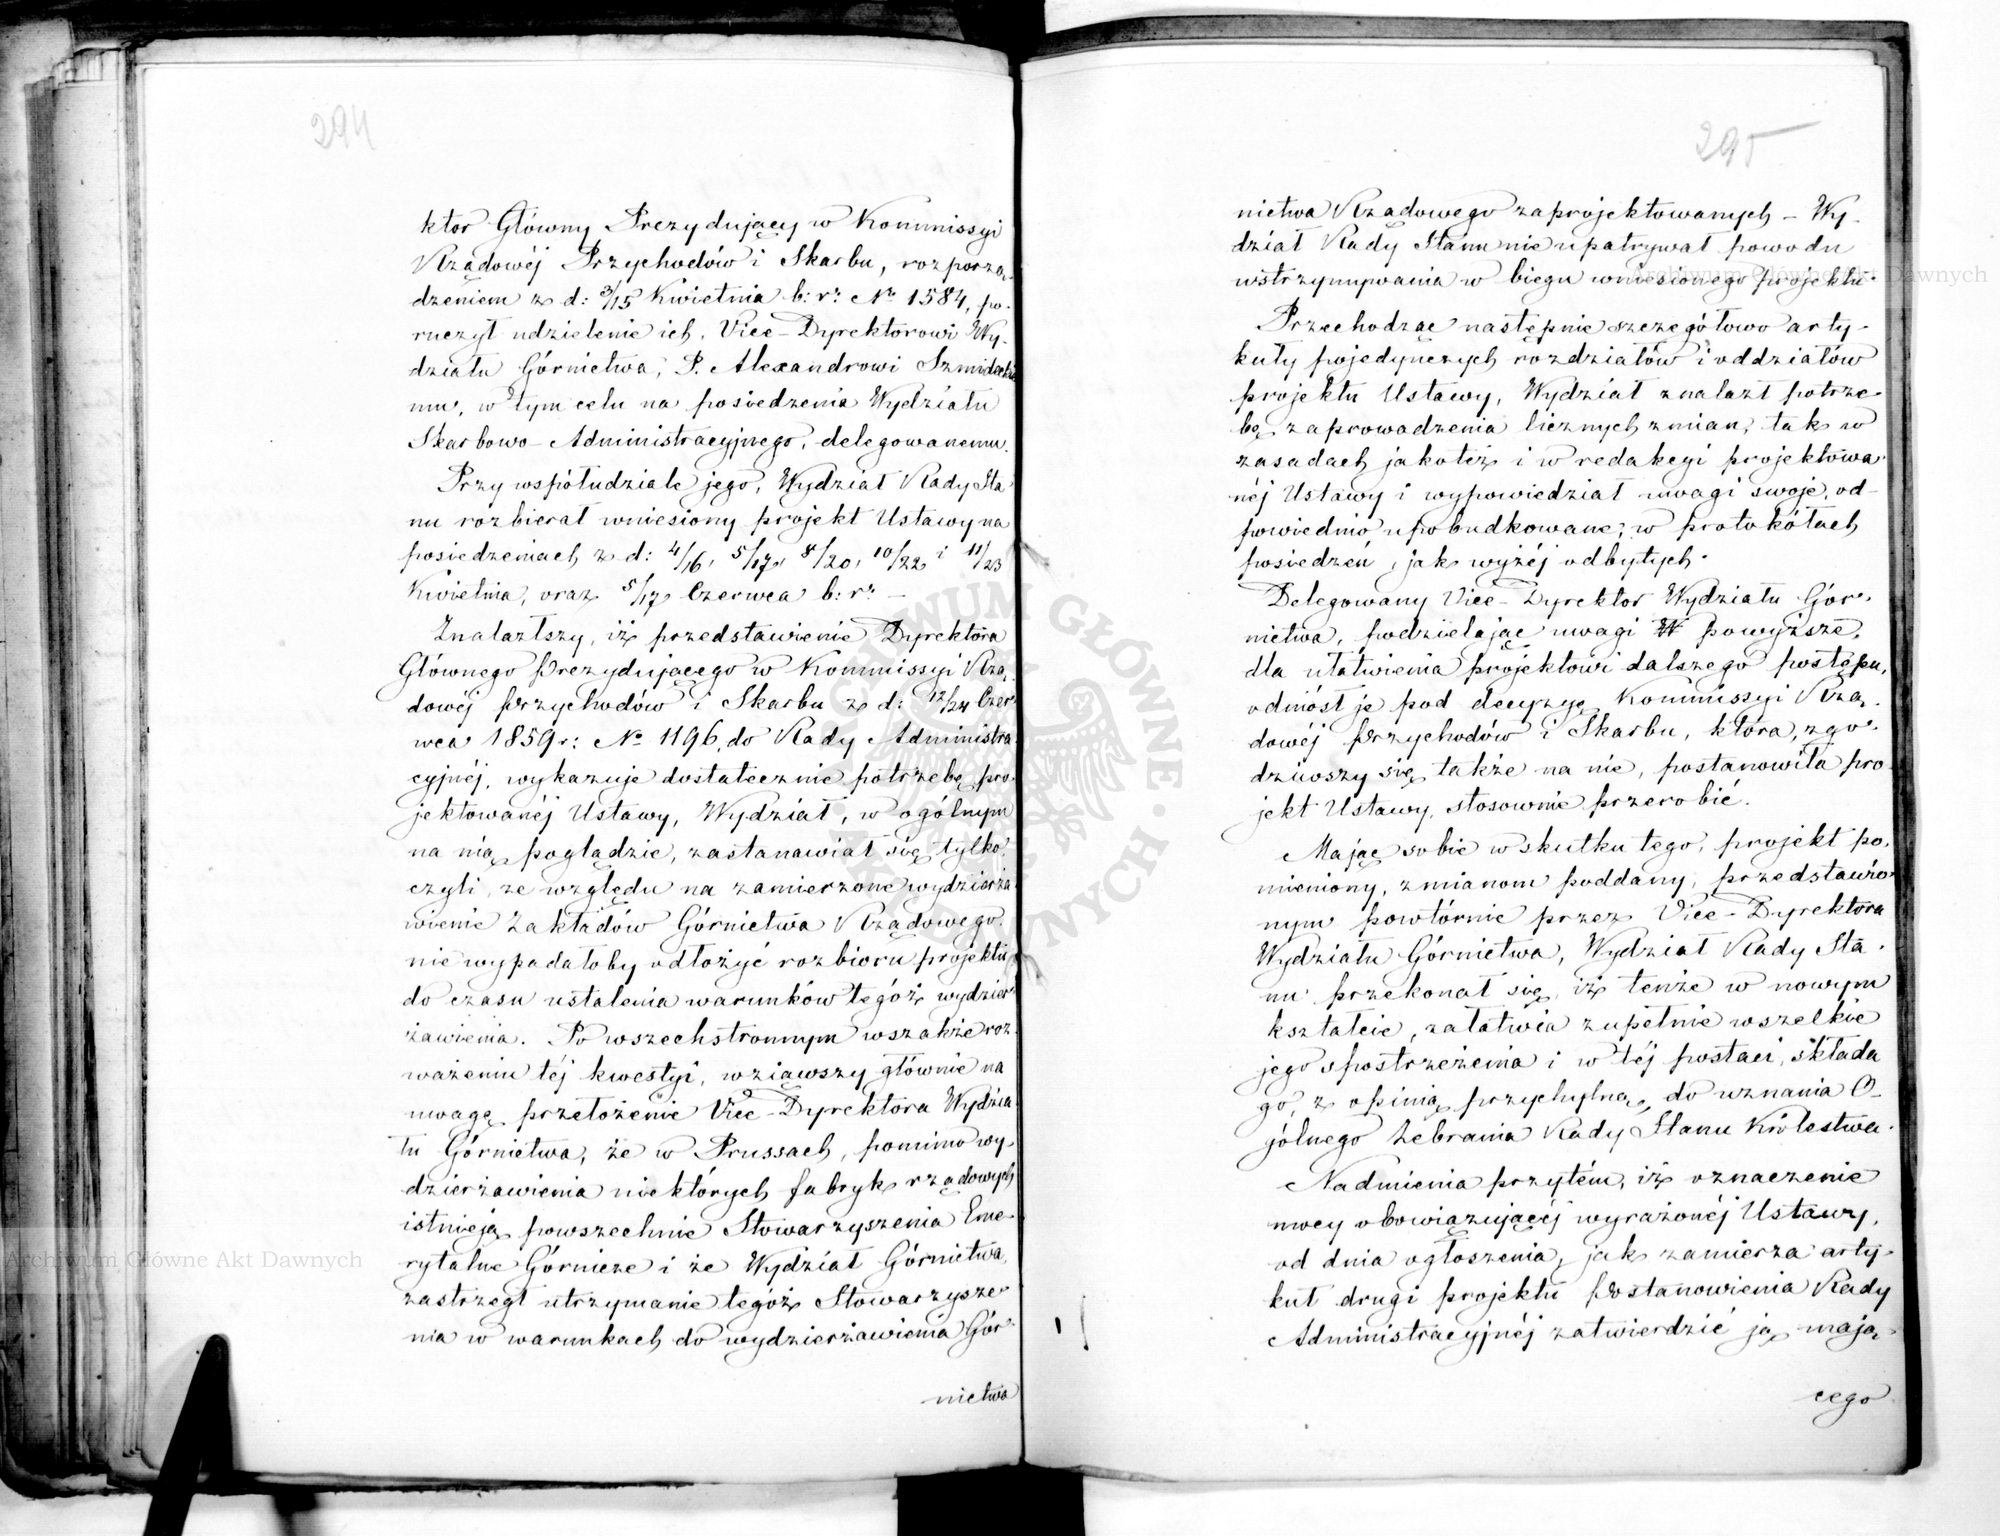 294
ktor Główny Prezydujący w Kommissyi
Rządowéj Przychodów i Skarbu, rozporzą-
dzeniem z d: 3/15 Kwietnia b: r: No 1584, po-
ruczył udzielenie ich, Vice-Dyrektorowi Wy-
działu Górnictwa, P. Alexandrowi Szmideckie
mu, w tym celu na posiedzenia Wydziału
Skarbowo-Administracyjnego, delegowanemu.
Przy współudziale jego, Wydział Rady Sta
nu rozbierał wniesiony projekt Ustawy na
posiedzeniach z d: 4/16, 5/17, 8/20, 10/22 i 11/23
Kwietnia, oraz 5/17 Czerwca b: r: –
Znalazłszy, iż przedstawienie Dyrektora
Głównego Prezydującego w Kommissyi Rzą-
dowéj Przychodów i Skarbu z d: 12/24 Czer
wca 1859 r: No 1196, do Rady Administra
cyjnéj, wykazuje dostatecznie potrzebę pro-
jektowanéj Ustawy, Wydział, w ogólnym
na nią poglądzie, zastanawiał się tylko,
czyli, ze względu na zamierzone wydzierża
wienie Zakładów Górnictwa Rządowego,
nie wypadałoby odłożyć rozbioru projektu,
do czasu ustalenia warunków tegóż wydzier
żawienia. Po wszechstronnym wszakże roz-
ważeniu téj kwestyi, wziąwszy głównie na
uwagę przełożenie Vice-Dyrektora Wydzia
łu Górnictwa, że w Prussach, pomimo wy-
dzierżawienia niektórych fabryk rządowych
istnieją powszechnie Stowarzyszenia Eme-
rytalne Górnicze i że Wydział Górnictwa,
zastrzegł utrzymanie tegóż Stowarzysze-
nia w warunkach do wydzierżawienia Gór-
nictwa
295
nictwa Rządowego zaprojektowanych – Wy-
dział Rady Stanu nie upatrywał powodu
wstrzymywania w biegu wniesionego projektu.
Przechodząc następnie szczegółowo arty-
kuły pojedyńczych rozdziałów i oddziałów
projektu Ustawy, Wydział znalazł potrze-
bę zaprowadzenia licznych zmian, tak w
zasadach jakoteż i w redakcyi projektowa-
néj Ustawy i wypowiedział uwagi swoje, od-
powiednio upobudkowane, w protokółach
posiedzeń, jak wyżéj odbytych.
Delegowany Vice-Dyrektor Wydziału Gór-
nictwa, podzielając uwagi powyższe,
dla ułatwienia projektowi dalszego postępu,
odniósł je pod decyzyę Kommissyi Rzą-
dowéj Przychodów i Skarbu, która, zgo-
dziwszy się także na nie, postanowiła pro
jekt Ustawy, stosownie przerobić.
Mając sobie wskutku tego, projekt po-
mieniony, zmianom poddany, przedstawio
nym powtórnie przez Vice-Dyrektora
Wydziału Górnictwa, Wydział Rady Sta-
nu przekonał się, iż tenże w nowym
kształcie, załatwia zupełnie wszelkie
jego spostrzeżenia i w téj postaci, składa
go, z opinią przychylną, do uznania O-
gólnego Zebrania Rady Stanu Królestwa.
Nadmienia przytém, iż oznaczenie
mocy obowiązującéj wyrażonéj Ustawy,
od dnia ogłoszenia, jak zamierza arty-
kuł drugi projektu Postanowienia Rady
Administracyjnéj zatwierdzić ją mają-
cego
Archiwum Główne Akt Dawnych
Archiwum Główne Akt Dawnych
ARCHIWUM GŁÓWNE AKT DAWNYCH